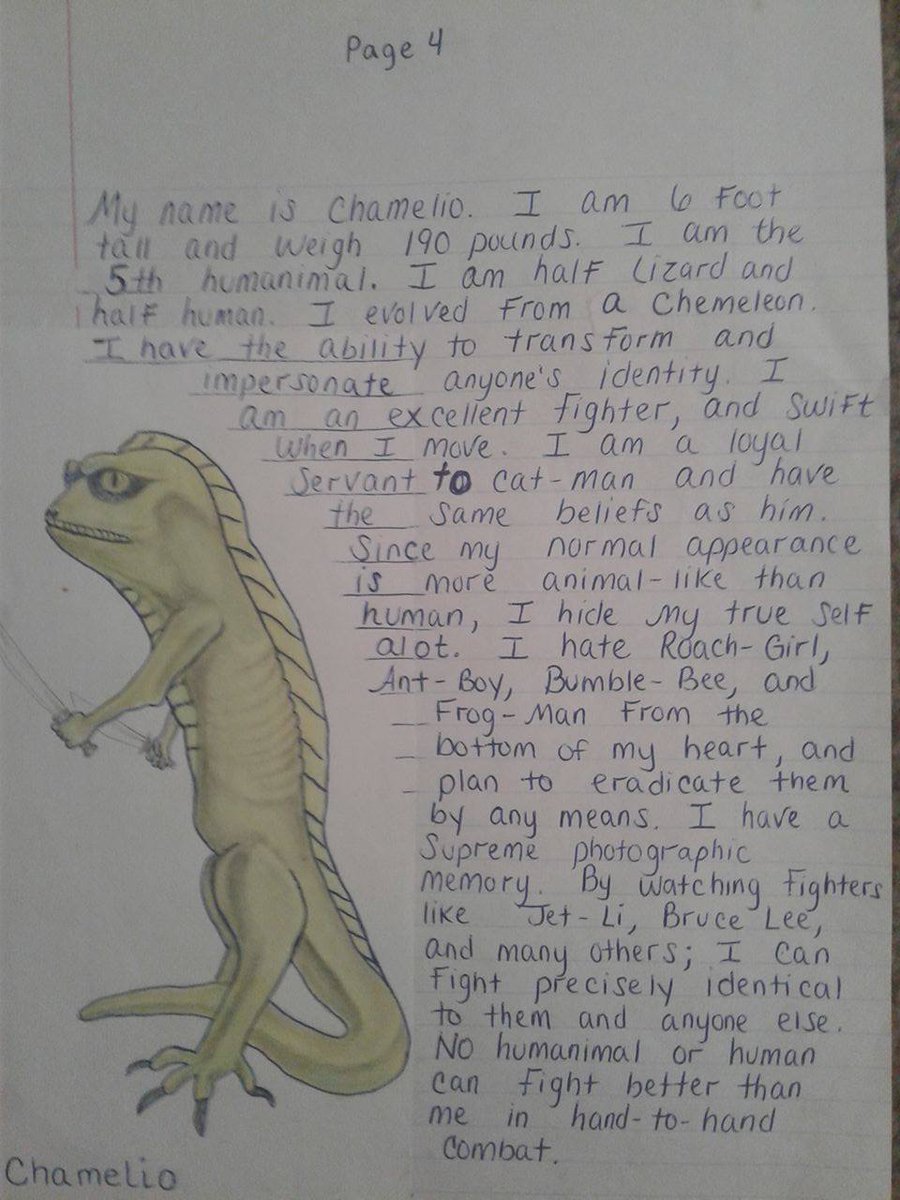 Page 4
My name is Chamelio. I am 6 Foot
tall and weigh 190 pounds. I am the
5th humanimal. I am half Lizard and
half human. I evolved From a Chemeleon.
I have the ability to transform and
impersonate anyone's identity. I
am an excellent fighter, and Swift
when I move. I am a loyal
Servant to cat-man and have
the same beliefs as him.
Since my normal appearance
is more animal-like than
human, I hide my true Self
alot. I hate Roach-Girl,
Ant-Boy, Bumble-Bee, and
Frog-Man From the
bottom of my heart, and
plan to eradicate them
by any means. I have a
Supreme photographic
memory. By watching Fighters
like Jet-Li, Bruce Lee,
and many others; I can
Fight precisely identical
to them and anyone else.
No humanimal or human
can fight better than
me in hand-to-hand
combat.
Chamelio